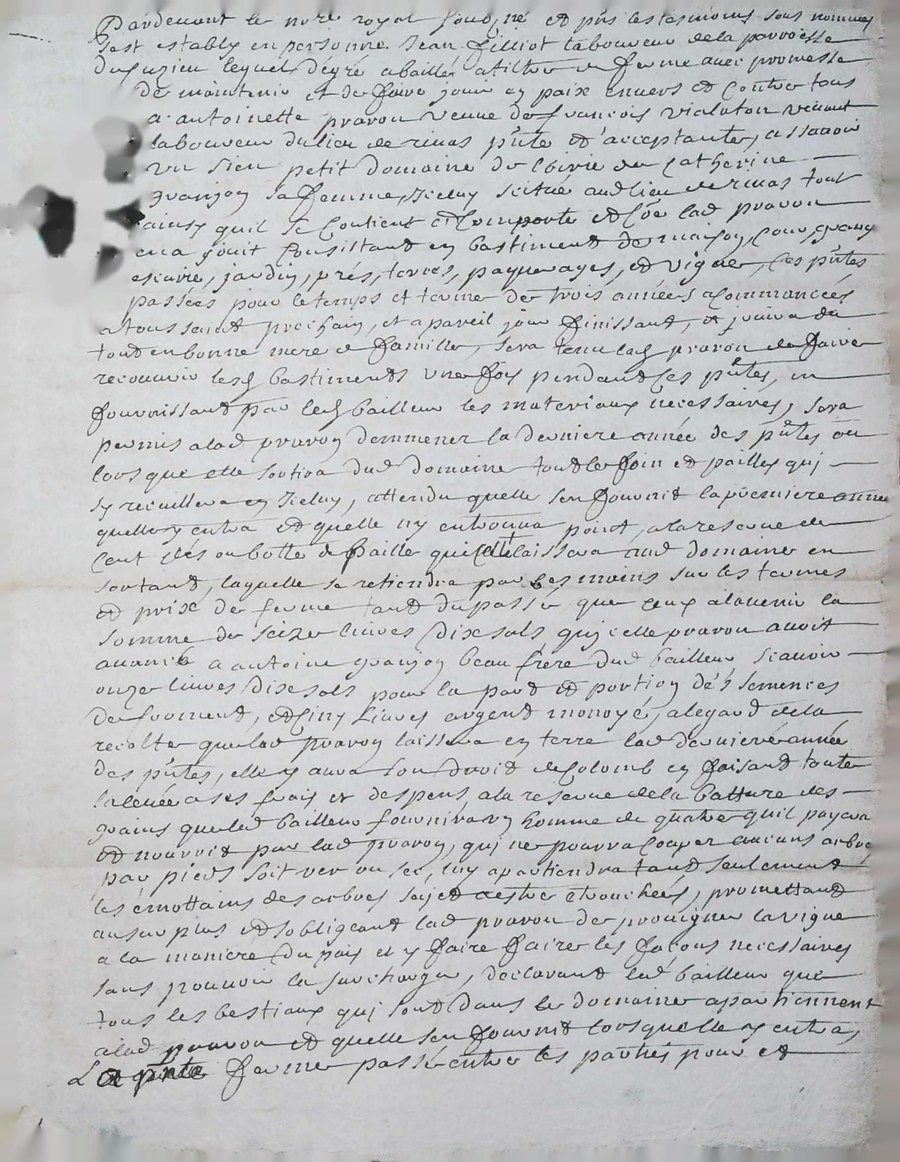 Pardevant le nore royal soubne et pnts les tesmoins sous nommes
sest estably en personne Jean Gilliot laboureur de la parroesse
de Suzieu lequel degré a baillé a tiltre de ferme avec promesse
de maintenir et de faire jouir en paix envers et contre tous
a antoinette pravon veuve de francois violaton vivant
laboureur du lieu de rivas pnte et acceptante, assavoir
un sien petit domaine de loirie de Catherine
granjon sa femme, Iceluy scitue aud lieu de rivas tout
ainsy quil se Contient et Comporte et Cõe lad pravon
en a jouit Consistand en bastiment de maison, Cour, grange
escurie, jardin, prés, terres, paquerages, et vigne, Ces pntes
passées pour le temps et terme de trois années a Commancées
a toussaint prochain, et a pareil jour finissant, et jouira du
tout en bonne mere de famille, sera tenu lad pravon de faire
recouvrir lesd bastiments une fois pendand Ces pntes, en
fournissand par led bailleur les materiaux necessaires, sera
permis a lad pravon demmener la derniere année des pntes ou
lors que elle sortira dud domaine tout le foin et pailles qui
sy recuillera en Iceluy, attendu quelle sen fournit la premiere année
quelle y entra et quelle ny en trouva point, a la reserve de
Cent clés ou botte de paille quelle laissera aud domaine en
sortand, laquelle se retiendra par ses mains sur les termes
et prix de ferme tand du passé que ceux a lavenir la
somme de seize livres dix sols qu icelle pravon avoit
avancé a antoine granjon beau frere dud bailleur scavoir
onze livres dix sols pour la part et portion des semences
de froment, et Cinq livres argent monoyé, a legard de la
recolte que lad pravon laissera en terre lad derniere année
des pntes, elle y aura son droit de Colomb en faisand toute
la levée a ses frais et despens, a la reserve de la batture des
grains que led bailleur fournira un homme de quatre quil payera
et nourrit par lad pravon, qui ne pourra Couper aucuns arbre
par pieds soit ver ou sec, luy apartiendra tand seulement
les émottains des arbres sujet a estre etrouchées, promettand
au surplus et sobligeand lad pravon de provigner la vigne
a la maniere du païs et y faire faire les façons necessaires
sans pouvoir la surcharger, declarand led bailleur que
tous les bestiaux qui sont dans le domaine apartiennent
a lad pravon et quelle sen fournit lorsquelle y entra,
La pnte ferme passé entre les parties pour et